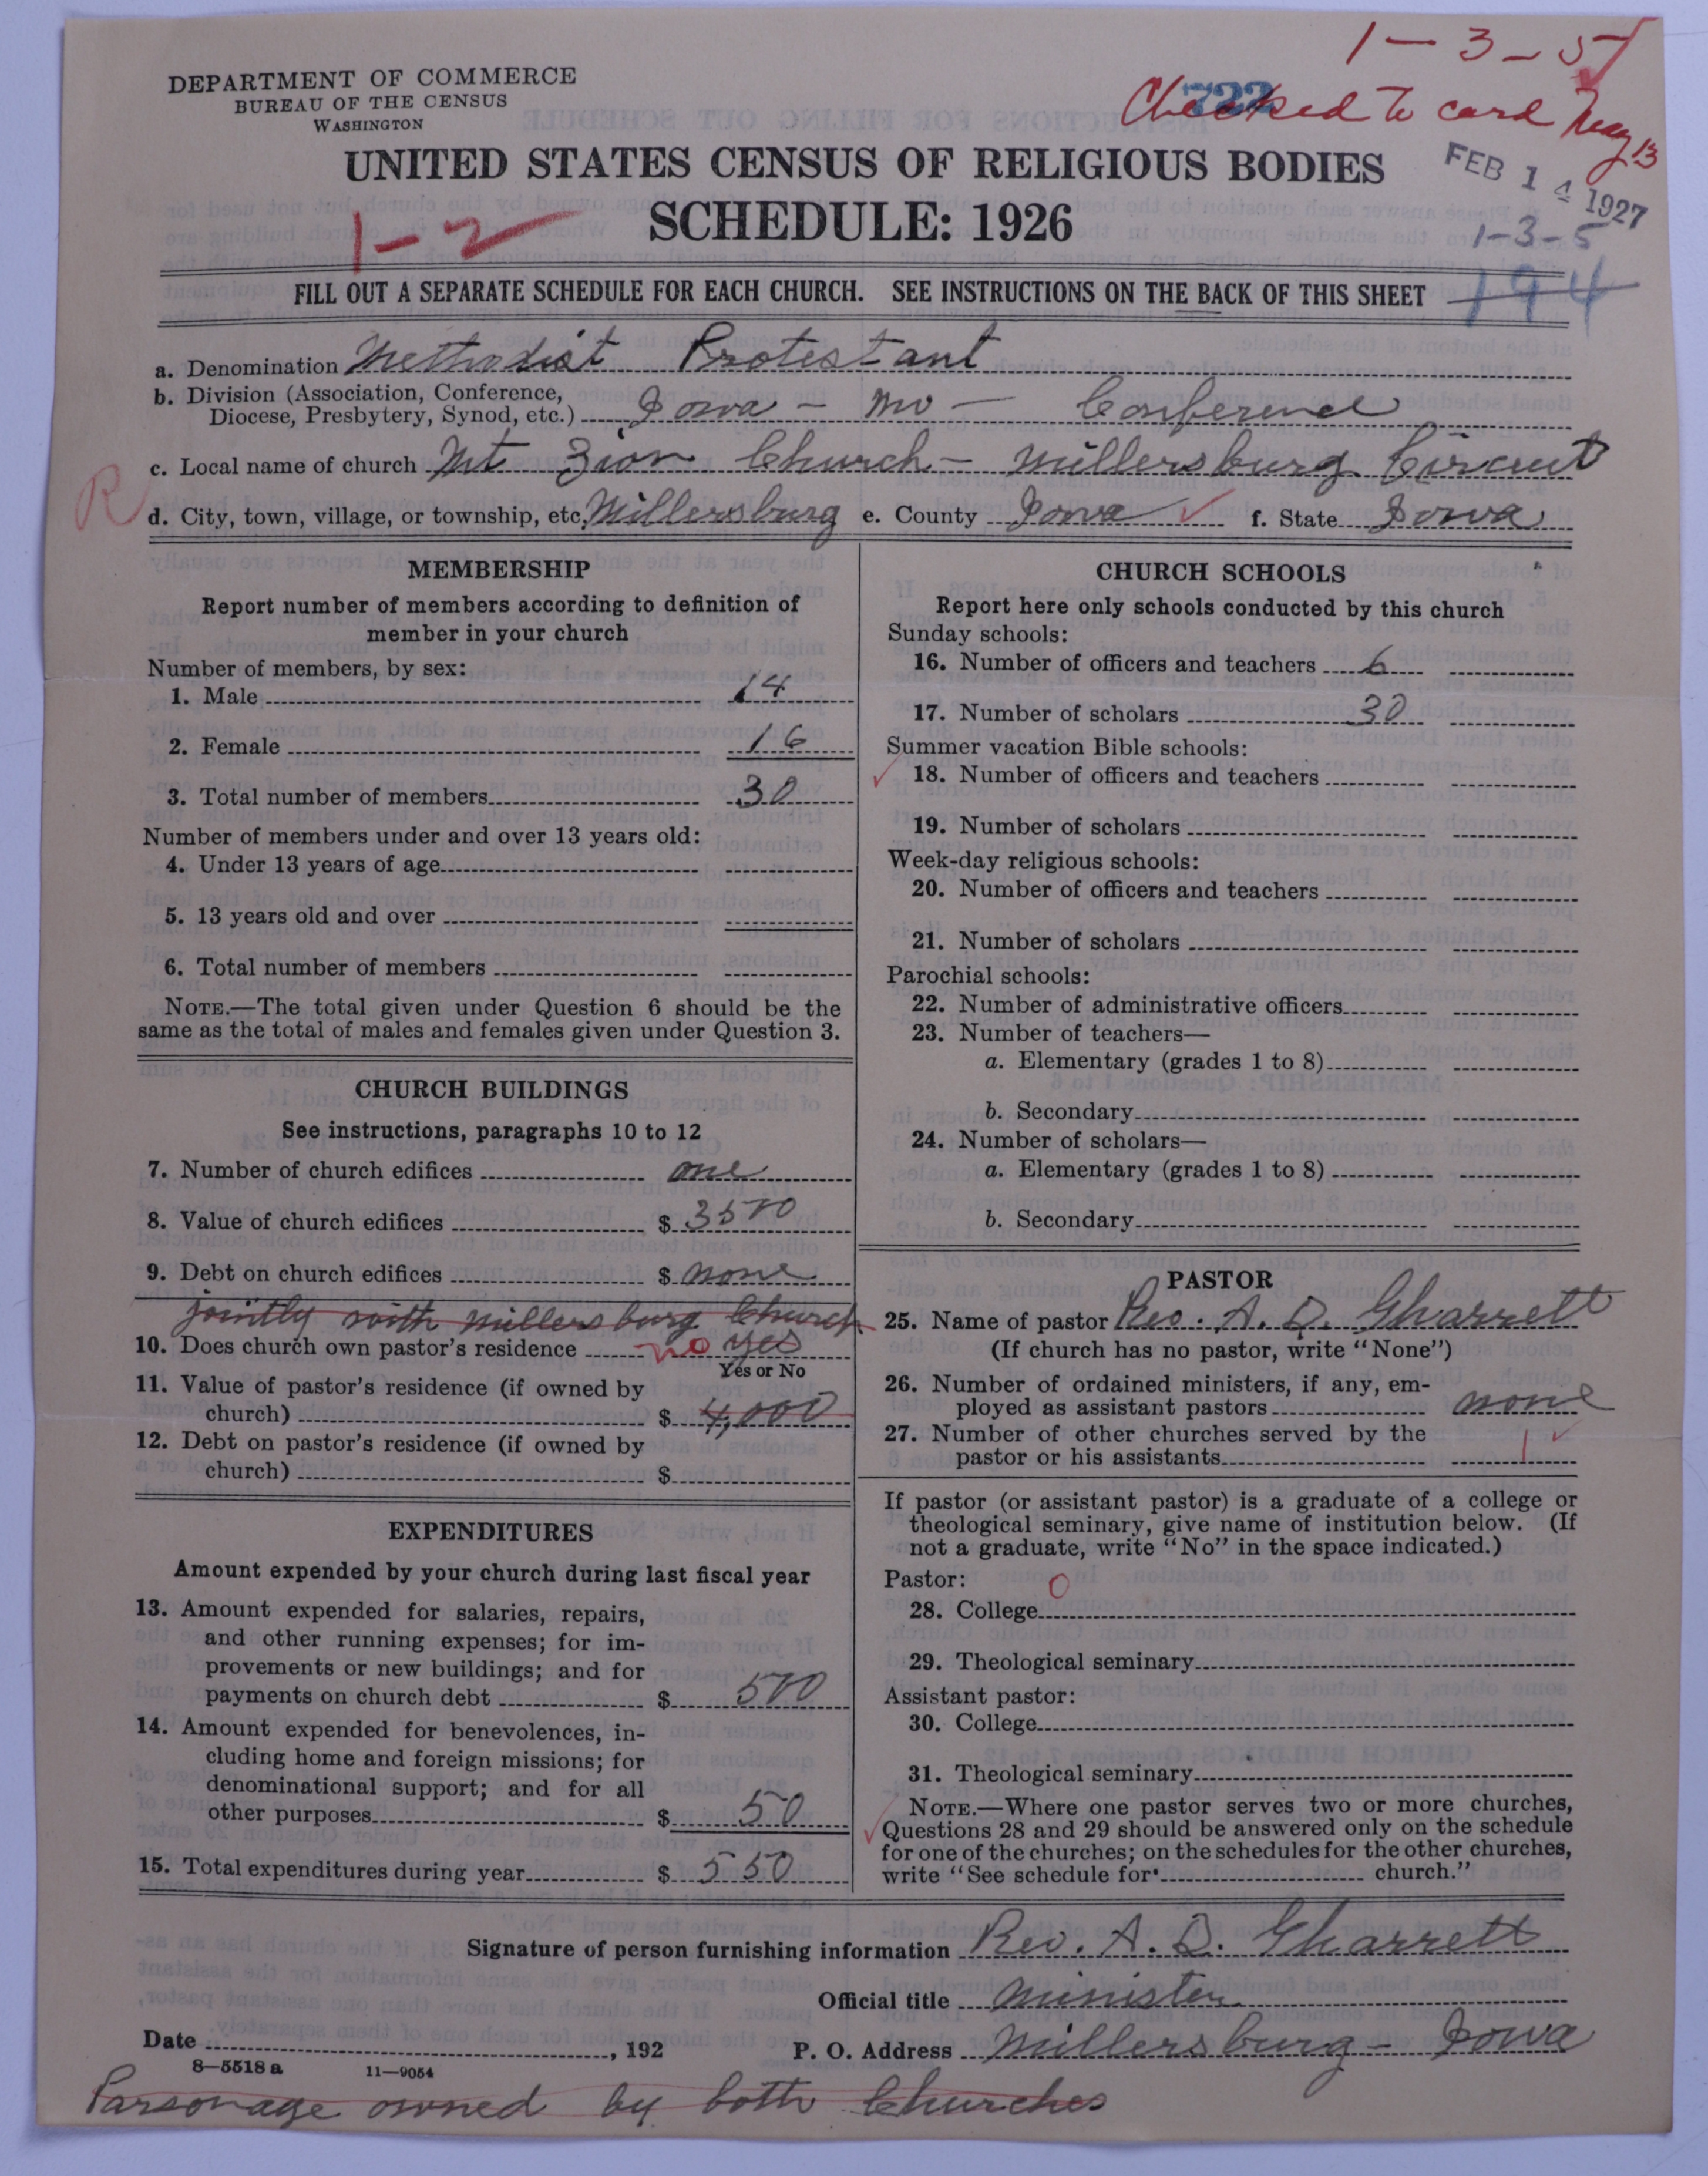 1-3-5
DEPARTMENT OF COMMERCE
BUREAU OF THE CENSUS
WASHINGTON
722
Checked to card May 13
UNITED STATES CENSUS OF RELIGIOUS BODIES
FEB 14 1927
1-2
SCHEDULE: 1926
1-3-5
FILL OUT A SEPARATE SCHEDULE FOR EACH CHURCH. SEE INSTRUCTIONS ON THE BACK OF THIS SHEET
194
a. Denomination Methodist Protestant
b. Division (Association, Conference,
Diocese, Presbytery, Synod, etc.) Iowa - Mo - Conference
c. Local name of church Mt Zion Church - Millersburg Circuit
R
d. City, town, village, or township, etc. Millersburg e. County Iowa ✓ f. State Iowa
MEMBERSHIP
Report number of members according to definition of
member in your church
Number of members, by sex:
1. Male 14
2. Female 16
3. Total number of members 30
Number of members under and over 13 years old:
4. Under 13 years of age
5. 13 years old and over
6. Total number of members
NOTE.—The total given under Question 6 should be the
same as the total of males and females given under Question 3.
CHURCH BUILDINGS
See instructions, paragraphs 10 to 12
7. Number of church edifices one
8. Value of church edifices $ 3500
9. Debt on church edifices $ none
jointly with Millersburg Church
10. Does church own pastor's residence no yes
Yes or No
11. Value of pastor's residence (if owned by
church) $ 4,000
12. Debt on pastor's residence (if owned by
church) $
EXPENDITURES
Amount expended by your church during last fiscal year
13. Amount expended for salaries, repairs,
and other running expenses; for im-
provements or new buildings; and for
payments on church debt $ 500
14. Amount expended for benevolences, in-
cluding home and foreign missions; for
denominational support; and for all
other purposes $ 50
15. Total expenditures during year $ 550
CHURCH SCHOOLS
Report here only schools conducted by this church
Sunday schools:
16. Number of officers and teachers 6
17. Number of scholars 30
Summer vacation Bible schools:
✓ 18. Number of officers and teachers
19. Number of scholars
Week-day religious schools:
20. Number of officers and teachers
21. Number of scholars
Parochial schools:
22. Number of administrative officers
23. Number of teachers—
a. Elementary (grades 1 to 8)
b. Secondary
24. Number of scholars—
a. Elementary (grades 1 to 8)
b. Secondary
PASTOR
25. Name of pastor Rev. A. D. Gharrett
(If church has no pastor, write "None")
26. Number of ordained ministers, if any, em-
ployed as assistant pastors none
27. Number of other churches served by the
pastor or his assistants 1 ✓
If pastor (or assistant pastor) is a graduate of a college or
theological seminary, give name of institution below. (If
not a graduate, write "No" in the space indicated.)
Pastor: 0
28. College
29. Theological seminary
Assistant pastor:
30. College
31. Theological seminary
NOTE.—Where one pastor serves two or more churches,
✓ Questions 28 and 29 should be answered only on the schedule
for one of the churches; on the schedules for the other churches,
write "See schedule for church."
Signature of person furnishing information Rev. A. D. Gharrett
Official title Minister
Date , 192
P. O. Address Millersburg - Iowa
8—5518 a 11—9054
Parsonage owned by both Churches